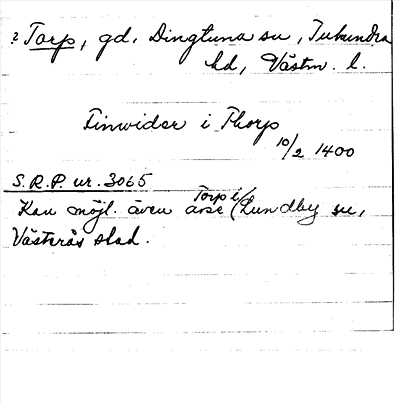 ? Torp, gd, Dingtuna sn, Tuhundra
hd, Västm. l.
Finvider i Thorp
10/2 1400
S.R.P. nr. 3065
Kan möjl. även avse (Torp i) Lundby sn,
Västerås stad.